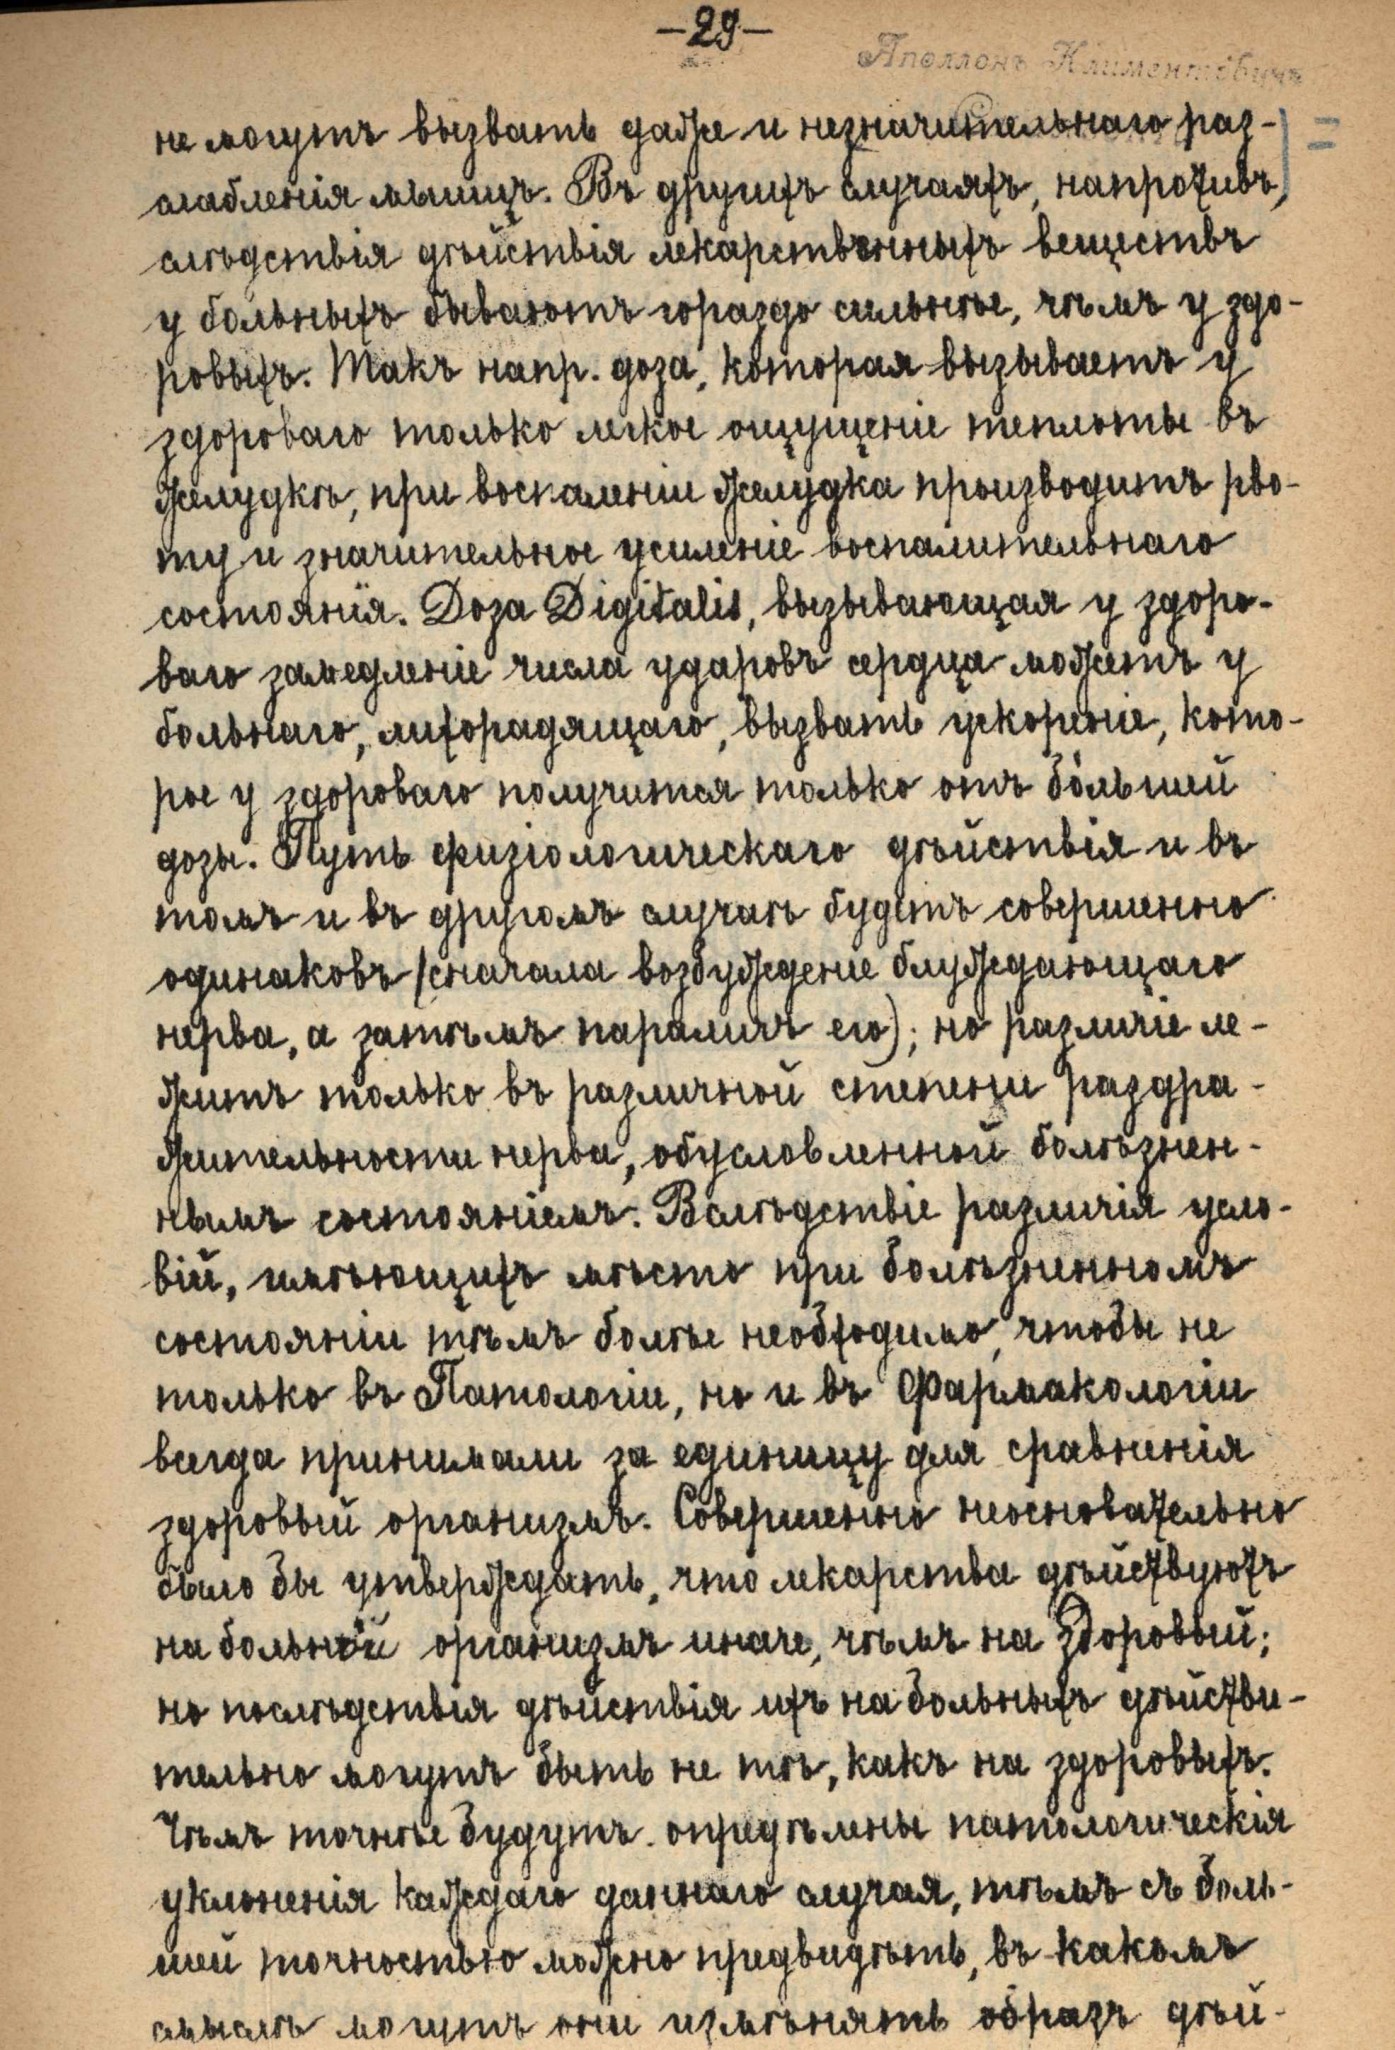 -29-
Аполлонъ Климентовичъ
не могутъ вызвать даже и незначительнаго раз-
слабленія мышцъ. Въ другихъ случаяхъ, напротивъ,
слѣдствія дѣйствія лекарственныхъ веществъ
у больныхъ бываютъ гораздо сильнѣе, чѣмъ у здо-
ровыхъ. Такъ напр. доза, которая вызываетъ у
здороваго только легкое ощущеніе теплоты въ
желудкѣ, при воспаленіи желудка производитъ рво-
ту и значительное усиленіе воспалительнаго
состоянія. Доза Digitalis, вызывающая у здоро-
ваго замедленіе числа ударовъ сердца можетъ у
больнаго, лихорадящаго, вызвать ускореніе, кото-
рое у здороваго получится только отъ бóльшей
дозы. Путь физіологическаго дѣйствія и въ
томъ и въ другомъ случаѣ будетъ совершенно
одинаковъ (сначала возбужденіе блуждающаго
нерва, а затѣмъ параличъ его); но различіе ле-
житъ только въ различной степени раздра-
жительности нерва, обусловленной болѣзнен-
нымъ состояніемъ. Вслѣдствіе различія усло-
вій, имѣющихъ мѣсто при болѣзненномъ
состояніи тѣмъ болѣе необходимо, чтобы не
только въ Патологіи, но и въ Фармакологіи
всегда принимали за единицу для сравненія
здоровый организмъ. Совершенно неосновательно
было бы утверждать, что лекарства дѣйствуютъ
на больной организмъ иначе, чѣмъ на здоровый;
но послѣдствія дѣйствія ихъ на больныхъ дѣйстви-
тельно могутъ быть не тѣ, какъ на здоровыхъ.
Чѣмъ точнѣе будутъ опредѣлены патологическія
уклоненія каждаго даннаго случая, тѣмъ съ боль-
шей точностью можно предвидѣть, въ какомъ
смыслѣ могутъ они измѣнять образъ дѣй-